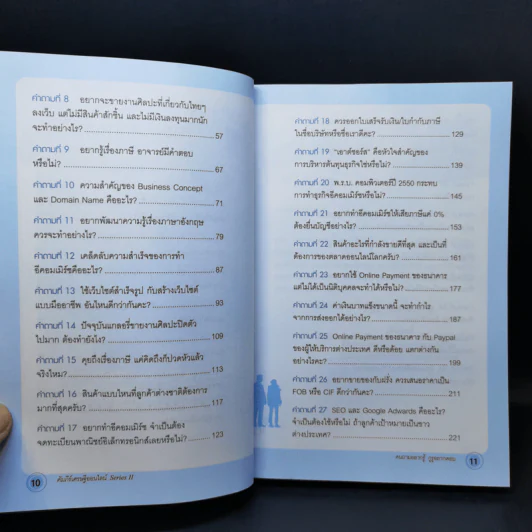 คำถามที่ 8 อยากจะขายงานศิลปะที่เกี่ยวกับไทยๆ
ลงเว็บ แต่ไม่มีสินค้าสักชิ้น และไม่มีเงินลงทุนมากนัก
จะทำอย่างไร? 57
คำถามที่ 9 อยากรู้เรื่องภาษี อาจารย์มีคำตอบ
หรือไม่? 67
คำถามที่ 10 ความสำคัญของ Business Concept
และ Domain Name คืออะไร? 71
คำถามที่ 11 อยากพัฒนาความรู้เรื่องภาษาอังกฤษ
ควรจะทำอย่างไร? 79
คำถามที่ 12 เคล็ดลับความสำเร็จของการทำ
อีคอมเมิร์ซคืออะไร? 87
คำถามที่ 13 ใช้เว็บไซต์สำเร็จรูป กับสร้างเว็บไซต์
แบบมืออาชีพ อันไหนดีกว่ากันคะ? 93
คำถามที่ 14 ปัจจุบันแกลอรี่ขายงานศิลปะปิดตัว
ไปมาก ต้องทำยังไง? 109
คำถามที่ 15 คุยถึงเรื่องภาษี แค่คิดถึงก็ปวดหัวแล้ว
จริงไหม? 113
คำถามที่ 16 สินค้าแบบไหนที่ลูกค้าต่างชาติต้องการ
มากที่สุดครับ? 117
คำถามที่ 17 อยากทำอีคอมเมิร์ซ จำเป็นต้อง
จดทะเบียนพาณิชย์อิเล็กทรอนิกส์เลยหรือไม่? 123
10 คัมภีร์เศรษฐีออนไลน์ Series II
คำถามที่ 18 ควรออกใบเสร็จรับเงิน/ใบกำกับภาษี
ในชื่อบริษัทหรือชื่อเราดีคะ? 129
คำถามที่ 19 "เอาต์ซอร์ส" คือหัวใจสำคัญของ
การบริหารต้นทุนธุรกิจใช่หรือไม่? 139
คำถามที่ 20 พ.ร.บ. คอมพิวเตอร์ปี 2550 กระทบ
การทำธุรกิจอีคอมเมิร์ซหรือไม่? 145
คำถามที่ 21 อยากทำอีคอมเมิร์ซให้เสียภาษีแค่ 0%
ต้องยื่นบัญชีอย่างไร? 153
คำถามที่ 22 สินค้าอะไรที่กำลังขายดีที่สุด และเป็นที่
ต้องการของตลาดออนไลน์โลกครับ? 161
คำถามที่ 23 อยากใช้ Online Payment ของธนาคาร
แต่ไม่ได้เป็นนิติบุคคลจะทำได้หรือไม่? 177
คำถามที่ 24 ค่าเงินบาทแข็งขนาดนี้ จะทำกำไร
จากการส่งออกได้อย่างไร? 187
คำถามที่ 25 Online Payment ของธนาคาร กับ Paypal
ของผู้ให้บริการต่างประเทศ ดีหรือด้อย แตกต่างกัน
อย่างไรคะ? 199
คำถามที่ 26 อยากขายของกับฝรั่ง ควรเสนอราคาเป็น
FOB หรือ CIF ดีกว่ากันคะ? 211
คำถามที่ 27 SEO และ Google Adwords คืออะไร?
จำเป็นต้องใช้หรือไม่ ถ้าลูกค้าเป้าหมายเป็นชาว
ต่างประเทศ? 221
11